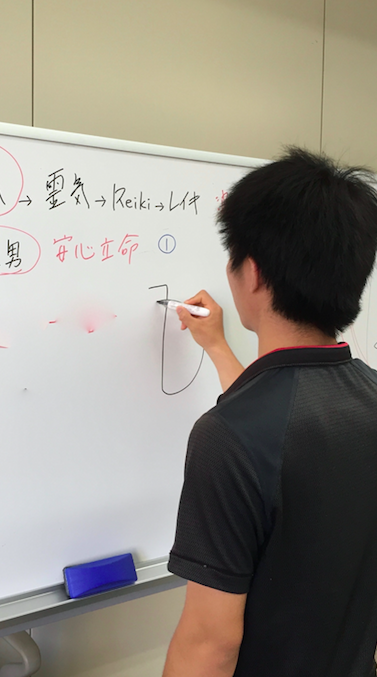 → 靈気 → Reiki → レイキ
男 安心立命 ①